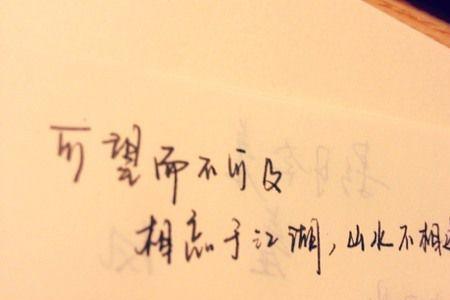 可望而不可及
相忘于江湖，山水不相